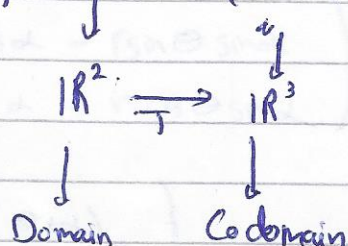 ℝ² → ℝ³
T
Domain Codomain